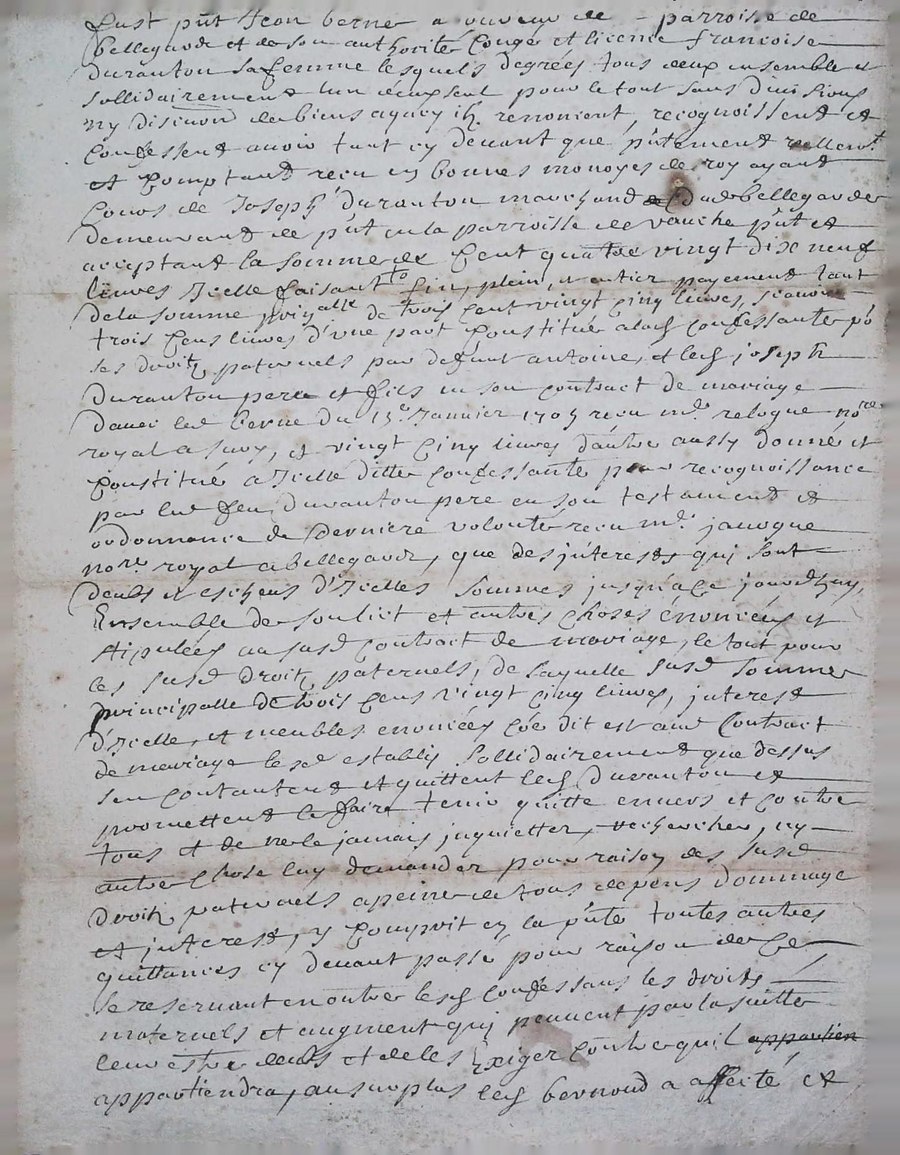 Fust pnt Jean berne a ouureur de – parroise de
bellegarde et de son authorité Congé et licence francoise
duranton sa femme lesquels degreés tous deux ensemble et
sollidairement lun deux seul pour le tout sans divisions
ny discution de biens aquoy ils renoncent, recognoissent et
Confessent avoir tant cy devant que pntement reellemt
et Comptant receu en bonnes monoyes de roy ayant
Cours de Joseph duranton marchand dud bellegarde
demeurant de pnt en la parroisse de vauche pnt et
acceptant la somme de Cent quatre vingt dix neuf
livres Icelle faisant fin, plein, et entier payement tant
de la somme prinalle de trois Cent vingt Cinq livres, scavoir
trois Cens livres d'une part Constitué a lad Confessante po
ses droitz paternels par defunt antoine, et led joseph
duranton pere et fils en son contract de mariage
avec led berne du 13e Janvier 1705 receu me relogue nore
royal a sury, et vingt Cinq livres dautre aussy donné et
Constitué a Icelle ditte Confessante pour recognoissance
par led feu duranton pere en son testament et
ordonnance de derniere volonte receu me janogue
nore royal a bellegarde, que des jnterests qui sont
deubs et escheus d'Icelles sommes jusqu'a ce jourdhuy,
Ensemble de soulict et autres choses énoncées et
stipulées au susd Contract de mariage, le tout pour
les susd droitz paternels, de laquelle susd somme
principalle de trois Cens vingt Cinq livres, jnterest
d'Icelle, et meubles enoncées Coe dit est aud Contract
de mariage les sd establis sollidairement que dessus
sen contantent et quittent led duranton et
promettent le faire tenir quitte envers et contre
tous et de ne le jamais jnquietter, rechercher, ny
autre chose luy demander pour raison des susd
droitz paternels a peine de tous depens dommage
et jnterest, y Comprit en la pnte toutes autres
quittances cy devant passé pour raison de Ce
se reservant en outre lesd Confessans les droits
maternels et augment qui peuvent par la suitte
leur estre deubs et de les Exiger contre quil appartien
appartiendra, au surplus led bernoud a affecté et